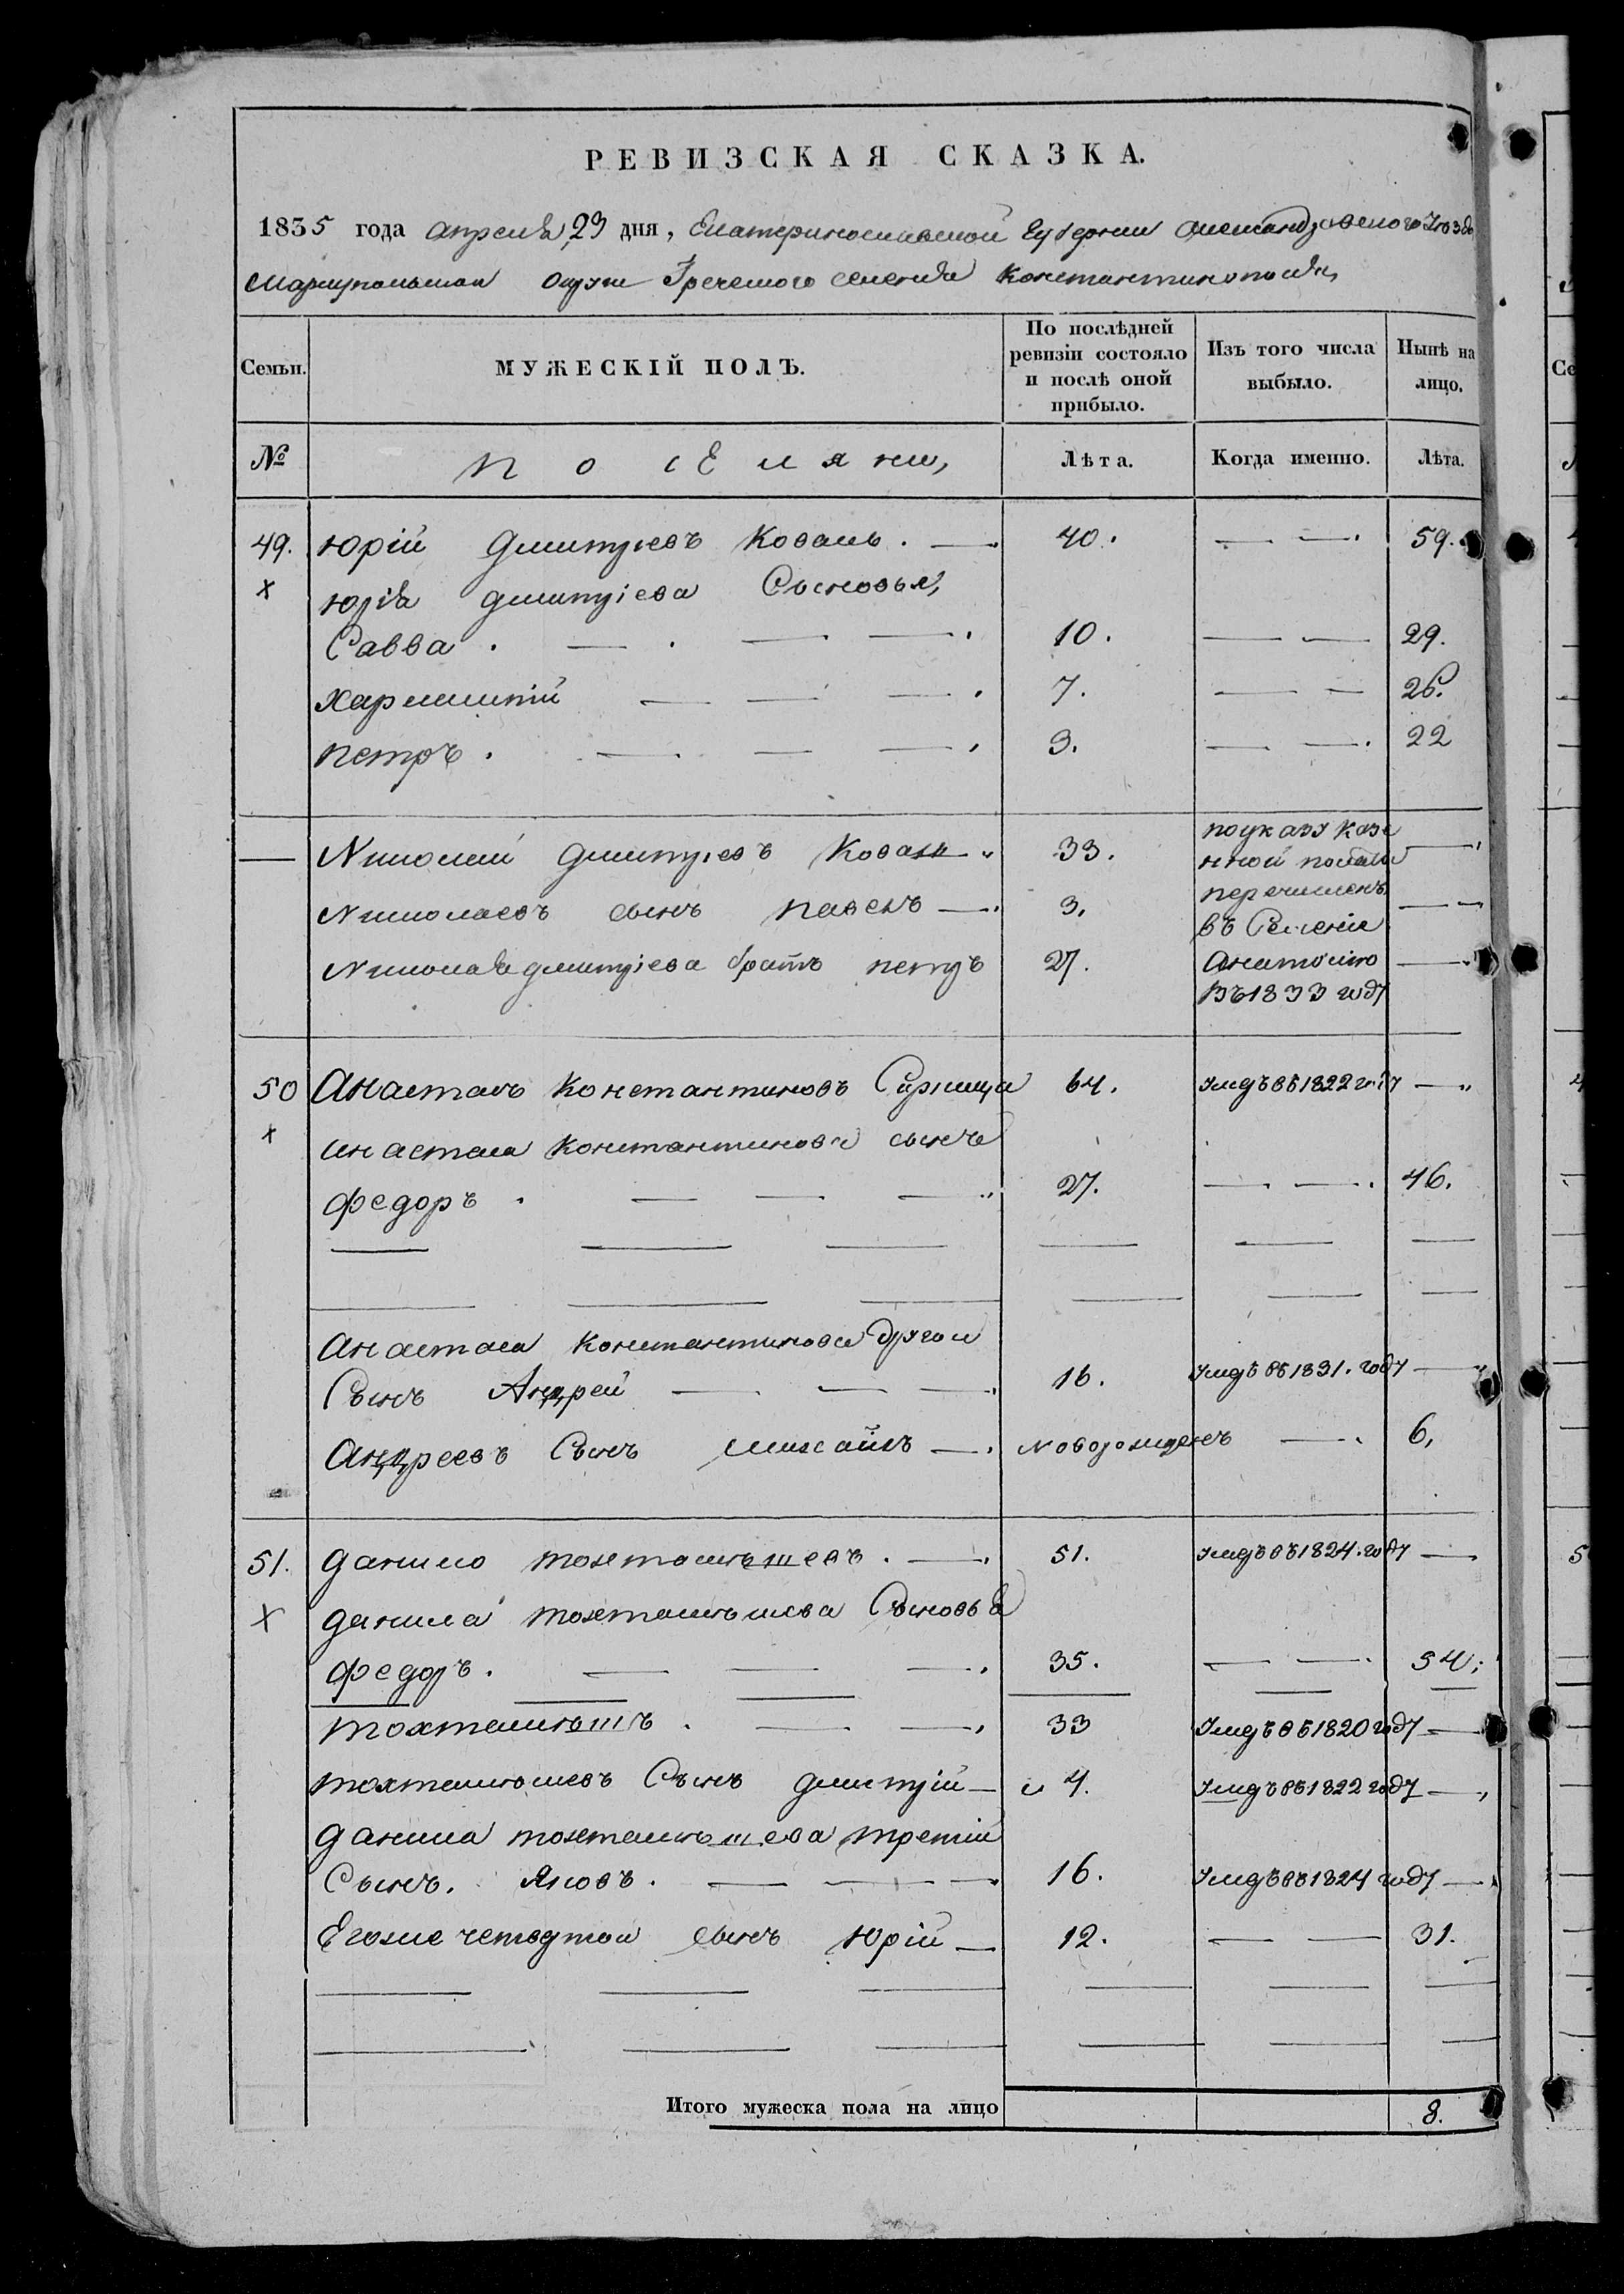 РЕВИЗСКАЯ СКАЗКА.
1835 года апреля 29 дня, Екатеринославской Губернии Александровского Уезда
Мариупольскаго Округа Греческого селения Константинополя,
Семьи. МУЖЕСКІЙ ПОЛЪ. По послѣдней ревизіи состояло и послѣ оной прибыло. Изъ того числа выбыло. Нынѣ на лицо.
№ Поселяни, Лѣта. Когда именно. Лѣта.
49. Юрій Дмитріевъ Коваль. 40. 59.
х Юрія Дмитріева Сыновья,
Савва. 10. 29.
Харлампій 7. 26.
Петръ. 3. 22
Николай Дмитріевъ Коваль 33. по указу Казе
нной полаты
Николаевъ сынъ Павелъ 3. перечисленъ
въ Селеніе
Николая Дмитріева братъ Петръ 27. Анатолію
въ 1833 году
50 Анастасъ Константиновъ 64. Умдъ въ 1822 году
х Анастаса Константинова сынъ
Федоръ. 27. 46.
Анастаса Константинова другой
Сынъ Андрей 16. Умдъ въ 1831. году
Андреевъ Сынъ Михайлъ Новорожденъ 6,
51. Данило Тохтамышевъ. 51. Умдъ въ 1824. году
х Данила Тохтамышева Сыновья
Федоръ. 35. 54;
Тохтамышъ. 33 Умдъ въ 1820 году
Тохтамышевъ Сынъ Дмитрій 4. Умдъ въ 1822 году
Данила Тохтамышева третій
Сынъ. Яковъ. 16. Умдъ въ 1824 году
Егоже четвертой сынъ Юрій 12. 31.
Итого мужеска пола на лицо 8.